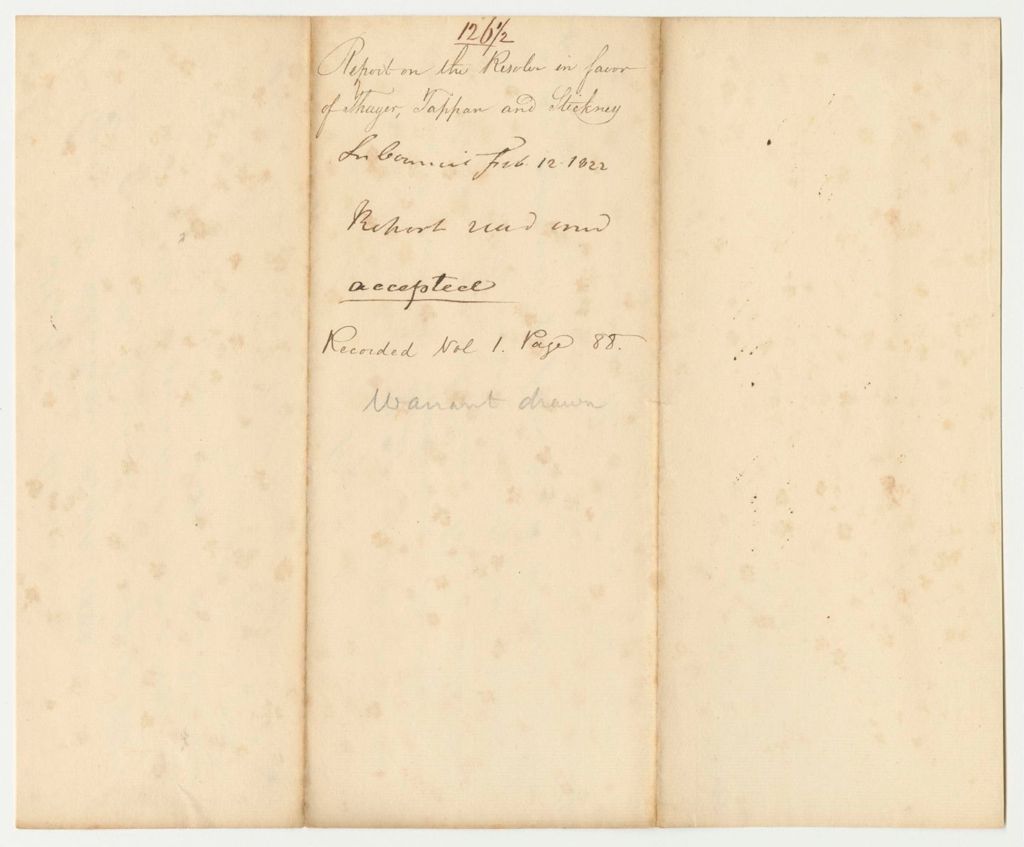 126½
Report on the Resolve in favor
of Thayer, Tappan and Stickney
In Council Feb 12. 1822
Report read and
accepted
Recorded Vol 1. Page 88.
Warrant drawn